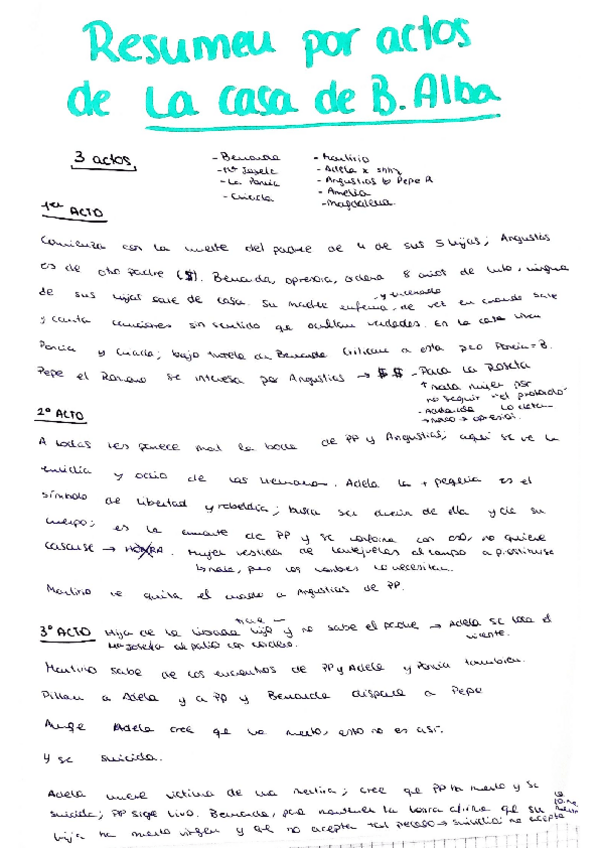 Resumen por actos
de La casa de B. Alba
3 actos
- Bernarda
- Mª Josefa
- La Poncia
- Criada
- Martirio
- Adela x
- Angustias Pepe R
- Amelia
- Magdalena.
1er ACTO
Comienza con la muerte del padre de 4 de sus 5 hijas; Angustias
es de otro padre ($). Bernarda, opresora, ordena 8 años de luto, ninguna
de sus hijas sale de casa. Su madre enferma, y encerrada de vez en cuando sale
y canta canciones sin sentido que ocultan verdades. En la casa viven
Poncia y Criada; bajo tutela de Bernarda Critican a esta pero Poncia = B.
Pepe el Romano se interesa por Angustias → $ $ - Paca La Roseta
↑ mala mujer por
no seguir "el protocolo"
- Adelaida
→ opresión.
2º ACTO
A todas les parece mal la boda de PP y Angustias; aquí se ve la
envidia y odio de las hermanas. Adela la + pequeña es el
símbolo de libertad y rebeldía; busca ser dueña de ella y de su
cuerpo; es la amante de PP y se conforma con eso, no quiere
casarse → HONRA. Mujer vestida de lentejuelas al campo a prostituirse
pero los hombres lo necesitan.
Martirio le quita el cuadro a Angustias de PP.
3º ACTO Hija de la Librada tiene hijo y no sabe el padre → Adela se toca el
vientre.
Mª Josefa al patio con cordero.
Martirio sabe de los encuentros de PP y Adela y Poncia también.
Pillan a Adela y a PP y Bernarda dispara a Pepe
Adela cree que ha muerto, esto no es así.
y se suicida.
Adela muere víctima de una mentira; cree que PP ha muerto y se
suicida; PP sigue vivo. Bernarda, para mantener la honra afirma que su
hija ha muerto virgen y que no acepta tal pecado → suicidio no acepta